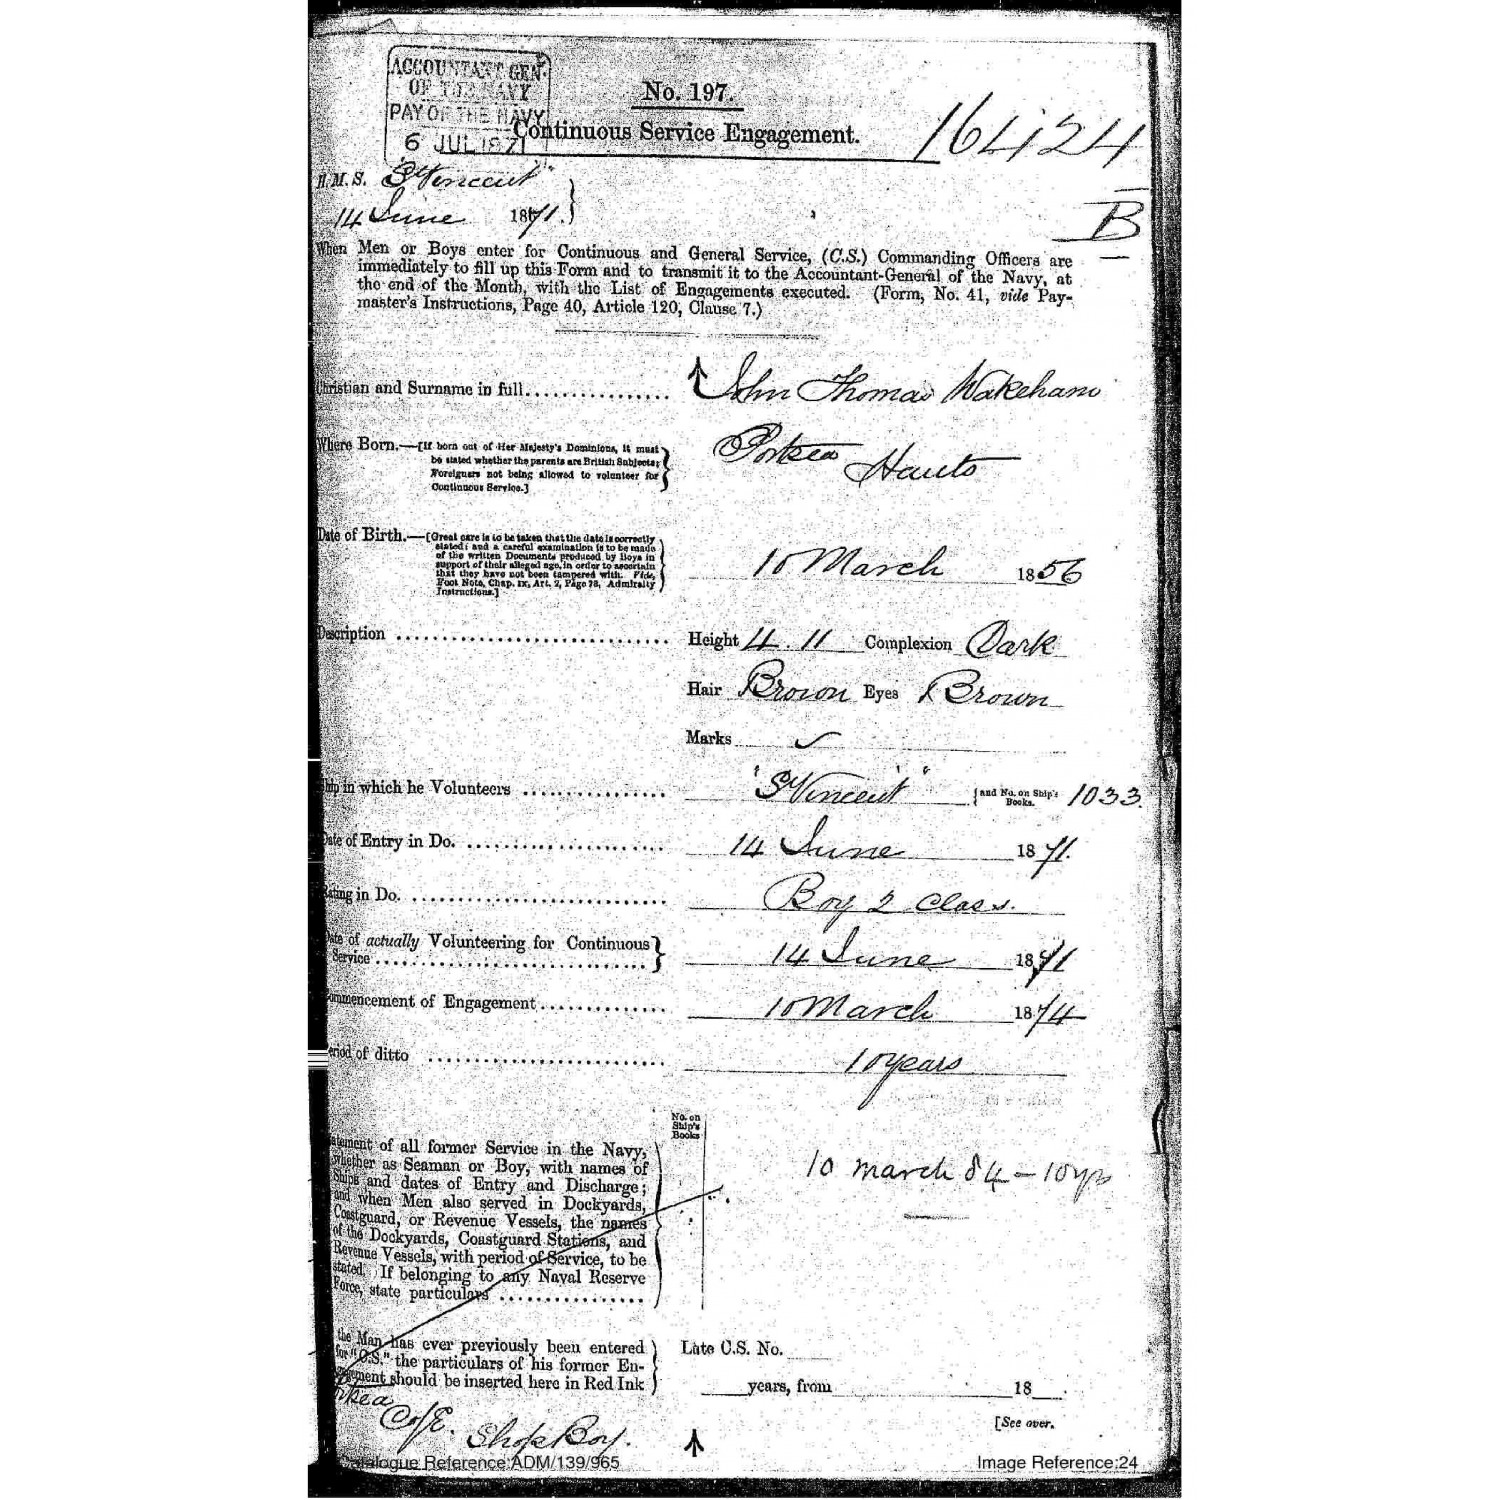 ACCOUNTANT GEN.
OF THE NAVY
PAY OF THE NAVY
6 JUL 1871
No. 197.
Continuous Service Engagement.
16424
B
H.M.S. "St Vincent"
14 June 1871.
When Men or Boys enter for Continuous and General Service, (C.S.) Commanding Officers are
immediately to fill up this Form and to transmit it to the Accountant-General of the Navy, at
the end of the Month, with the List of Engagements executed. (Form, No. 41, vide Pay-
master's Instructions, Page 40, Article 120, Clause 7.)
Christian and Surname in full................ John Thomas Wakeham
Where Born.—[If born out of Her Majesty's Dominions, it must
be stated whether the parents are British Subjects;
Foreigners not being allowed to volunteer for
Continuous Service.]
Portsea Hants
Date of Birth.—[Great care is to be taken that the date is correctly
stated; and a careful examination is to be made
of the written Documents produced by Boys in
support of their alleged age, in order to ascertain
that they have not been tampered with. Vide,
Foot Note, Chap. IX, Art. 2, Page 78, Admiralty
Instructions.]
10 March 1856
Description ................................ Height 4.11 Complexion Dark
Hair Brown Eyes Brown
Marks
Ship in which he Volunteers ................ "St Vincent" and No. on Ship's Books. 1033.
Date of Entry in Do. ....................... 14 June 1871.
Rating in Do. ............................. Boy 2 Class.
Date of actually Volunteering for Continuous
Service .............................. 14 June 1871
Commencement of Engagement.............. 10 March 1874
Period of ditto ........................... 10 years
No. on
Ship's
Books
Statement of all former Service in the Navy,
whether as Seaman or Boy, with names of
Ships and dates of Entry and Discharge;
and when Men also served in Dockyards,
Coastguard, or Revenue Vessels, the names
of the Dockyards, Coastguard Stations, and
Revenue Vessels, with period of Service, to be
stated. If belonging to any Naval Reserve
Force, state particulars ..................
10 march 84 - 10 yrs
the Man has ever previously been entered
for "C.S." the particulars of his former En-
gagement should be inserted here in Red Ink
Late C.S. No.
years, from 18
[See over.
Portsea
C of E. Shop Boy.
Catalogue Reference:ADM/139/965
Image Reference:24